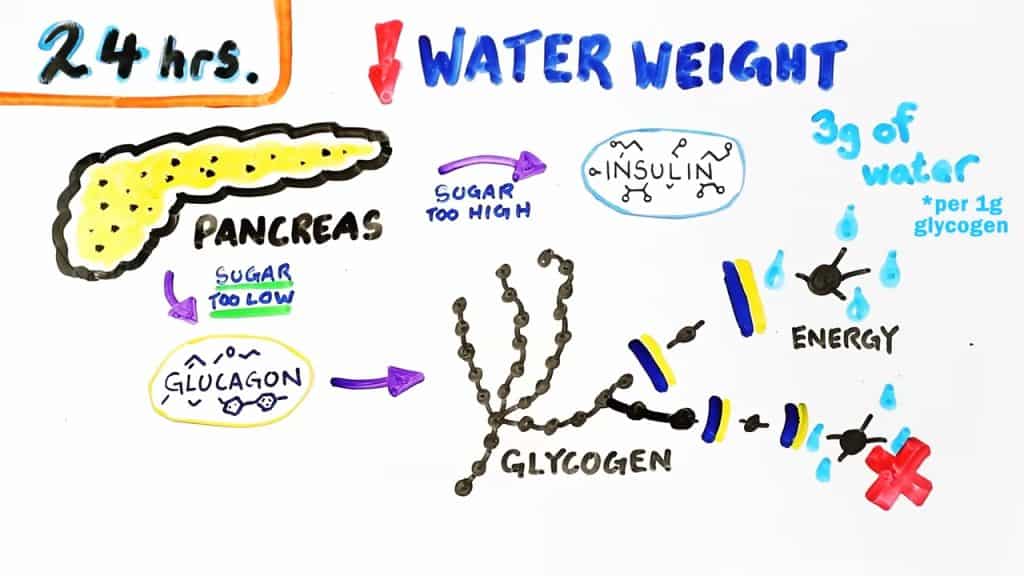 24 hrs.
WATER WEIGHT
3g of
water
*per 1g
glycogen
PANCREAS
SUGAR
TOO HIGH
INSULIN
SUGAR
TOO LOW
GLUCAGON
GLYCOGEN
ENERGY